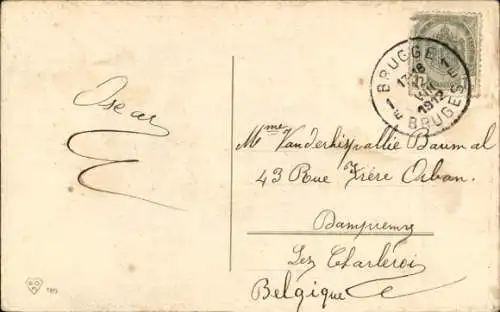 Oscar
BRUGGE 1E
1912
1E BRUGES
Mme Vanderhispallie Baumal
43 Rue Frère Orban.
Dampremy
Lez Charleroi
Belgique